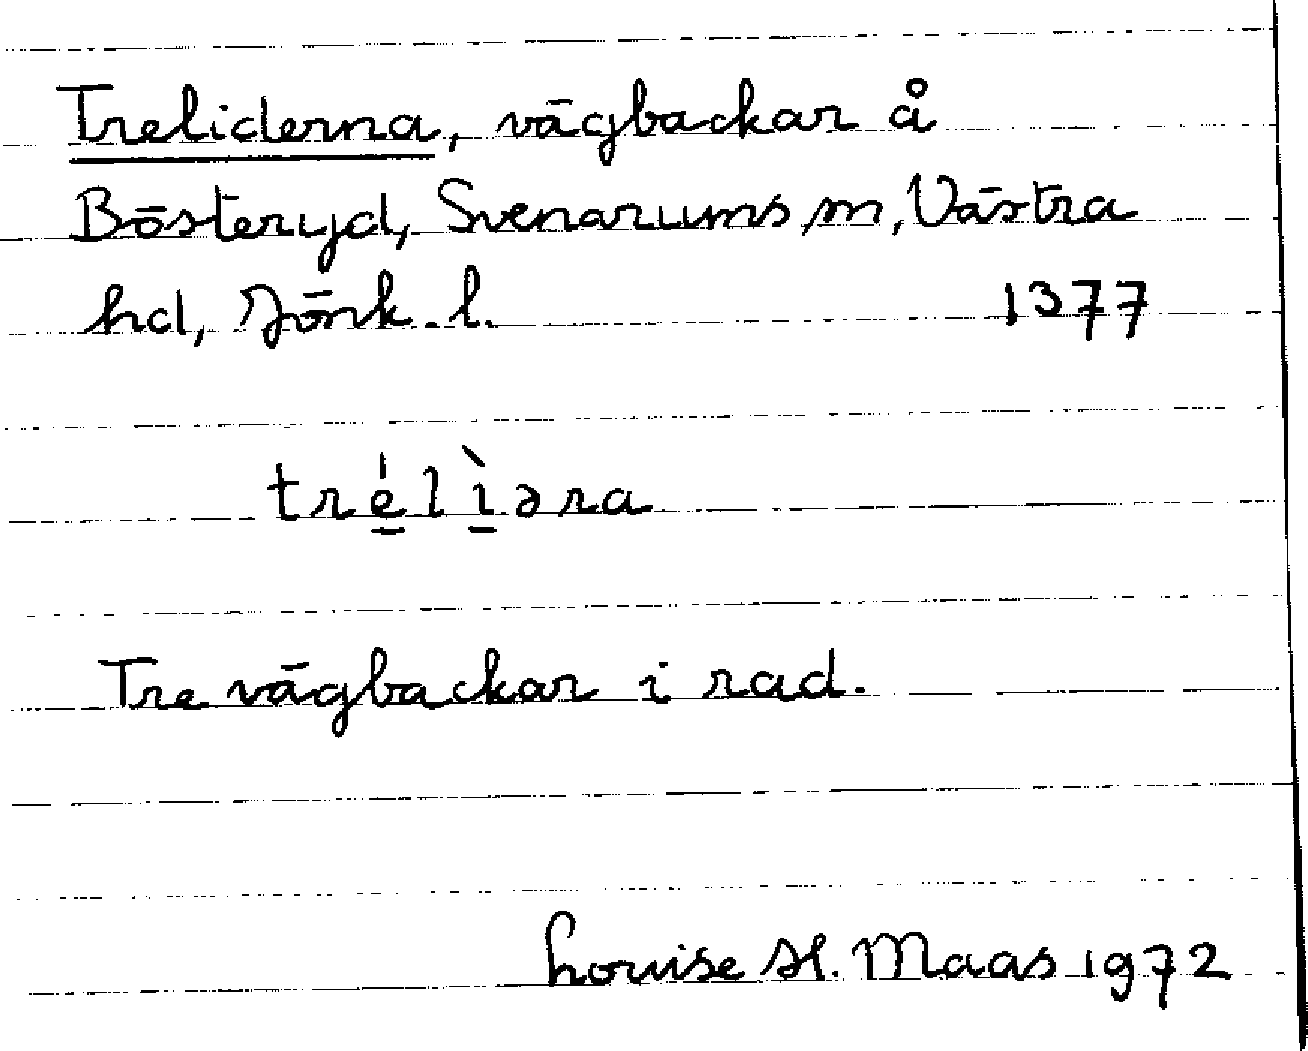 Treliderna, vägbackar å
Bösteryd, Svenarums sn, Västra
hd, Jönk. l. 1377
tré̱lì̱əra
Tre vägbackar i rad.
Louise H. Maas 1972